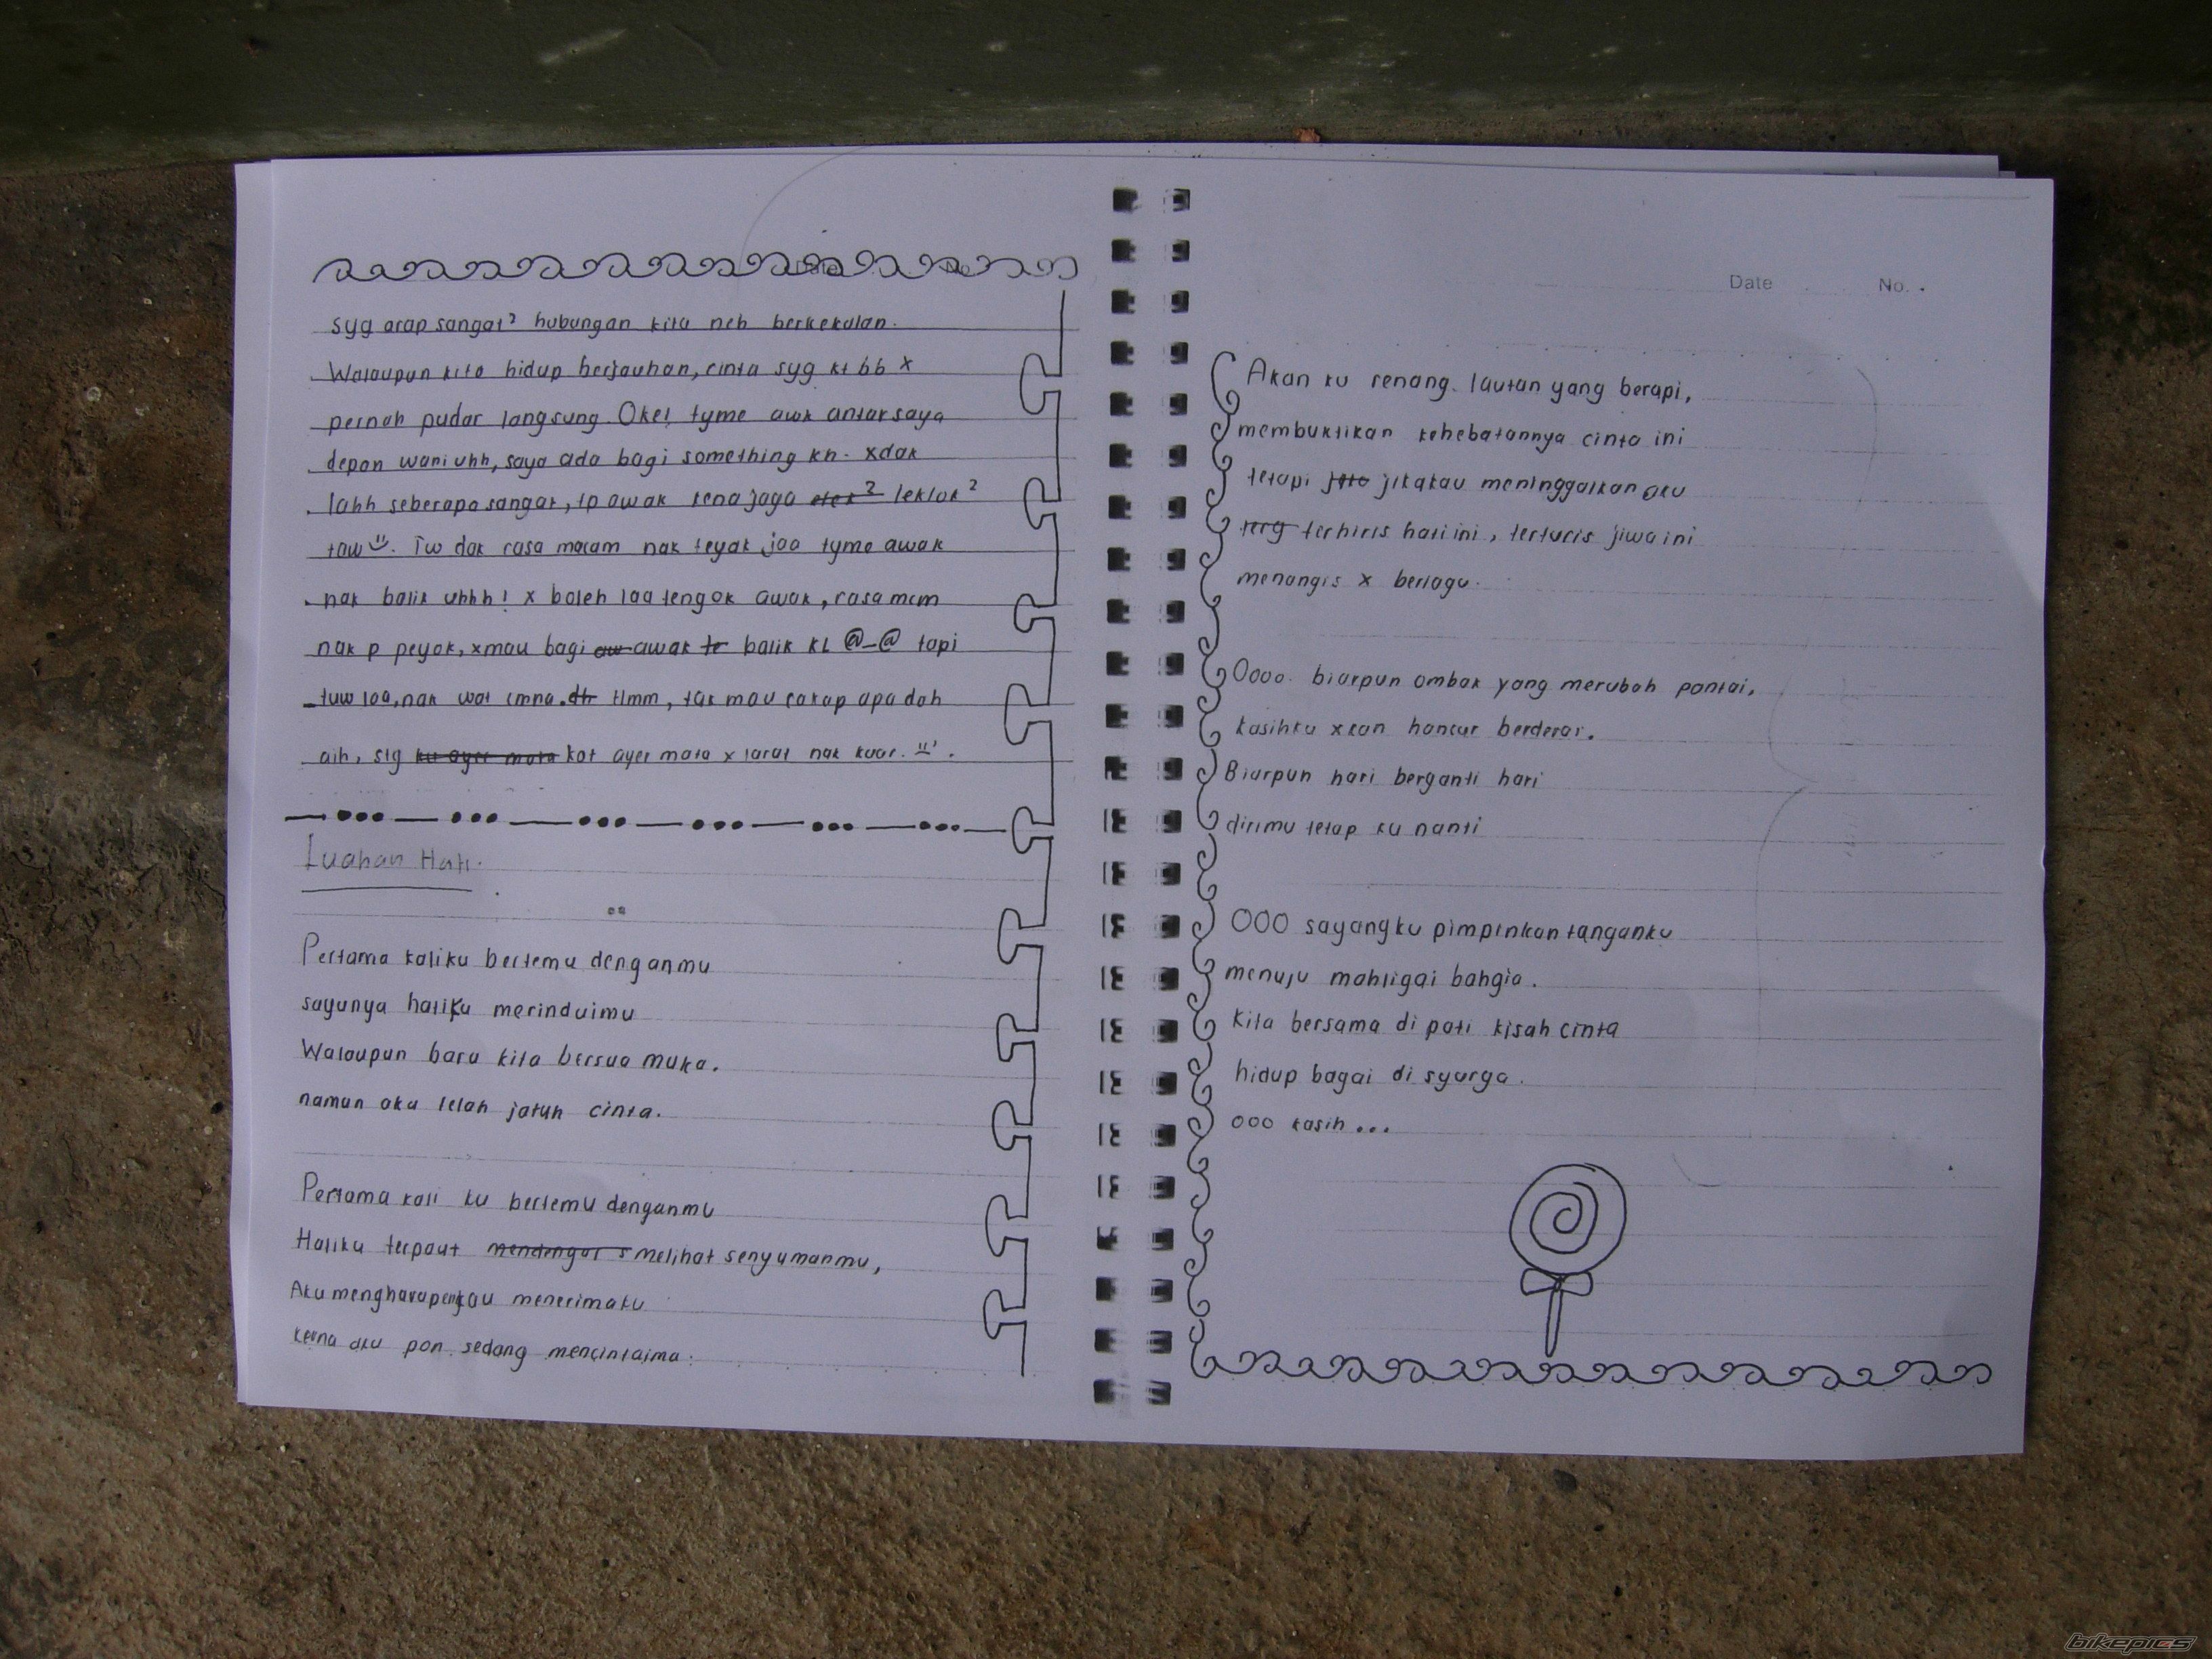 syg arap sangat² hubungan kita neh berkekalan.
Walaupun kita hidup berjauhan, cinta syg kt bb x
pernah pudar langsung. Oke! tyme awk antar saya
depan wani uhh, saya ada bagi something kn. xdak
lahh seberapa sangat, tp awak kena jaga elok² leklok²
taw. Tw dak rasa macam nak teyak jaa tyme awak
nak balik uhhh! x boleh laa tengok awak, rasa mcm
nak p peyok, xmau bagi aw awak te balik KL @_@ tapi
tuw laa, nak wat cmna. dh Hmm, tak mau cakap apa dah
aih, stg ku ayer mata kot ayer mata x larat nak kuar.
Luahan Hati.
Pertama kaliku bertemu denganmu
sayunya hatiku merinduimu
Walaupun baru kita bersua muka.
namun aku telah jatuh cinta.
Pertama kali ku bertemu denganmu
Hatiku terpaut mendengar s melihat senyumanmu,
Aku mengharap engkau menerimaku
kerna aku pon sedang mencintaimu.
Date No.
Akan ku renang lautan yang berapi,
membuktikan kehebatannya cinta ini
tetapi jika kau meninggalkan aku
terg terhiris hati ini, terguris jiwa ini
menangis x berlagu.
Oooo. biarpun ombak yang merubah pantai,
kasihku xkan hancur berderai.
Biarpun hari berganti hari
dirimu tetap ku nanti
OOO sayangku pimpinkan tanganku
menuju mahligai bahgia.
Kita bersama di pati kisah cinta
hidup bagai di syurga.
ooo kasih...
bikepics